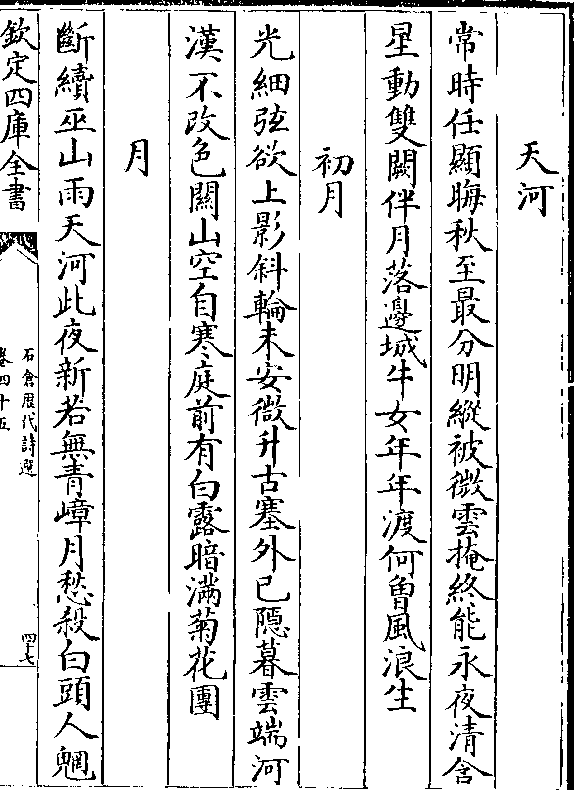 天河
常時任顯晦秋至最分明縱被微雲掩終能永夜清含
星動雙闕伴月落邊城牛女年年渡何曾風浪生
初月
光細弦欲上影斜輪未安微升古塞外已隱暮雲端河
漢不改色關山空自寒庭前有白露暗滿菊花團
月
斷續巫山雨天河此夜新若無青嶂月愁殺白頭人魍
欽定四庫全書
石倉歷代詩選
卷四十五
四七